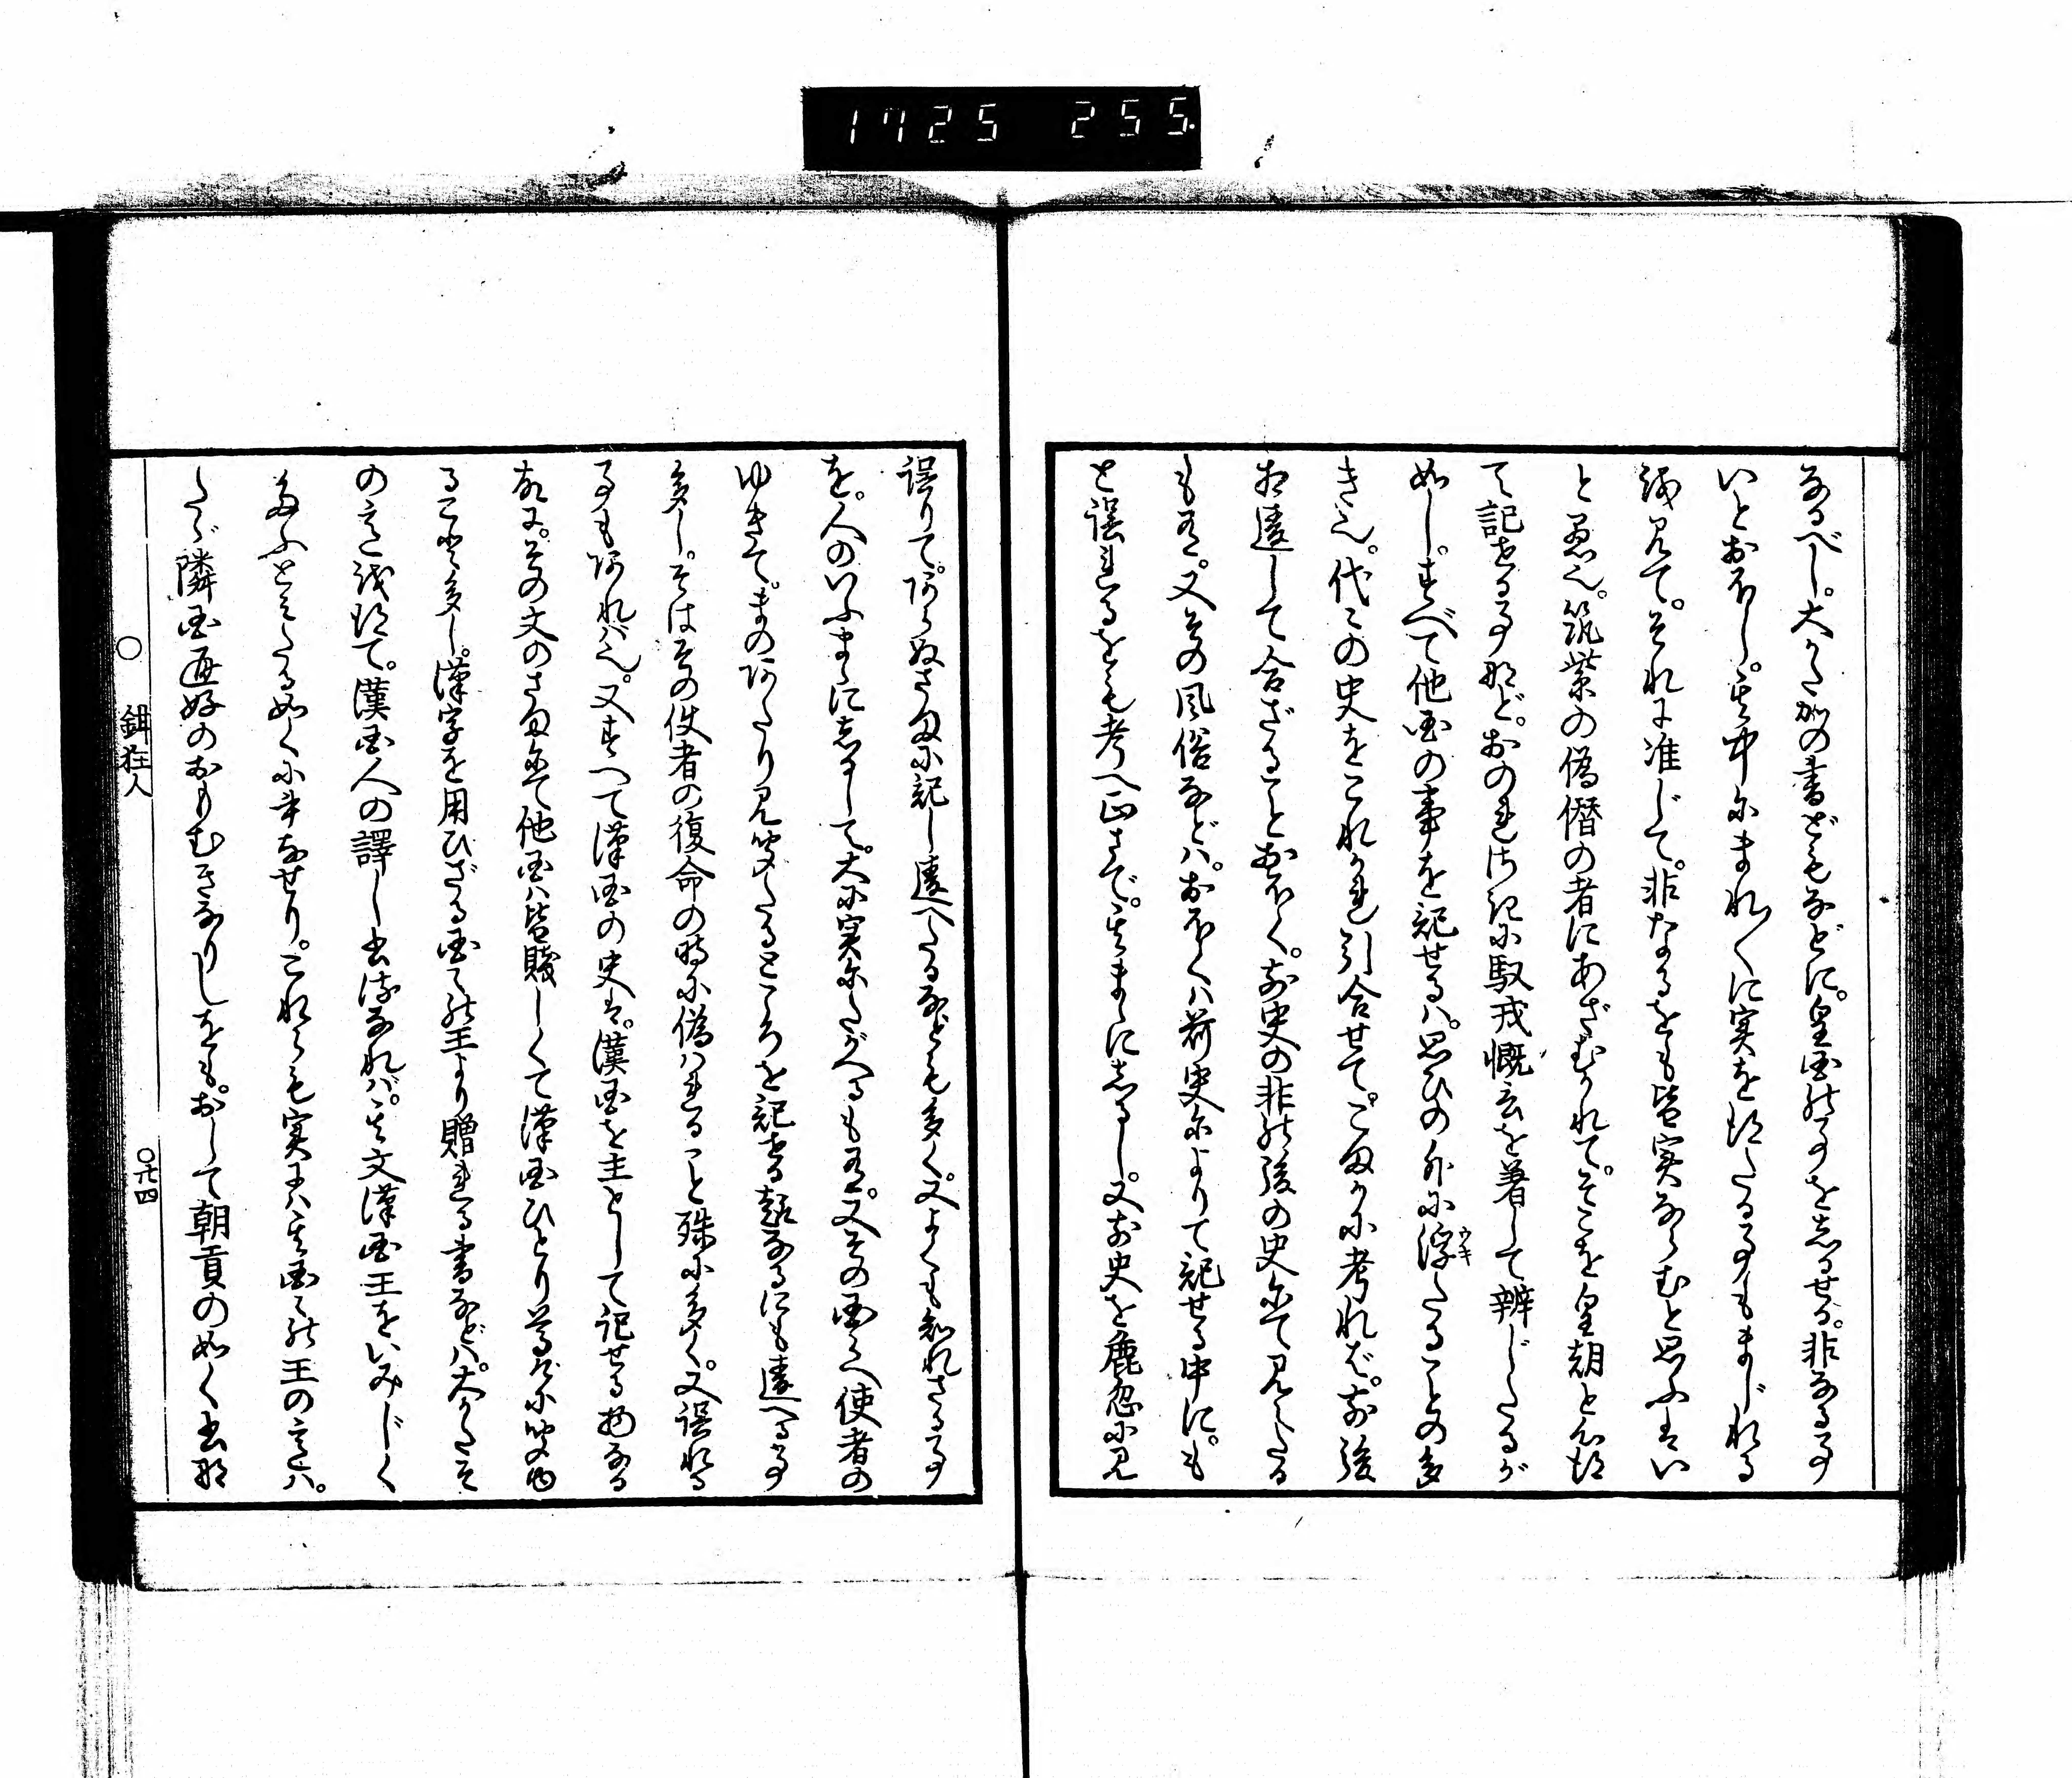 1725 255
なるべし。大かた如此の書どもなどに。皇国の事を志るせる。非なる事
いとおほし。其中にまれ〳〵に実を得たる事もまじれる
を見て。それに准じて。非なるをも皆実ならむと思ふはい
と愚也。筑紫の偽僭の者にあざむかれて。そこを皇朝と心得
て記せる事など。おのれ御紀に馭戎慨言を著して辨じたるが
如し。すべて他国の事を記せるハ。思ひの外に浮たることの多
ウキ
き也。代々の史をこれかれ引合せて。こまかに考れば。前後
相違して合ざることおほく。前史の非の後の史にて見えたる
も有。又その風俗などハ。おほくハ前史によりて記せる中に。も
と誤れるをも考へ正さで。其まゝに志るし。又前史を麁忽に見
誤りて。あらぬさまに記し違へたるなども多く。又よくも知れざる事
を。人のいふまゝに志るして。大に実にたがへるも有。又その国へ使者の
ゆきて。まのあたり見聞たるところを記せる類なるにも違へる事
多し。そはその使者の復命の時に偽ハれること殊に多く。又誤れる
事もあれバ也。又すべて漢国の史は。漢国を主として記せる物なる
故に。その文のさまにて他国ハ皆賤しくて漢国ひとり尊げに聞ゆ
ること多し。漢字を用ひざる国々の王より贈れる書などハ。大かたそ
の意を得て。漢国人の譯し出すなれバ。其文漢国王をいみじく
たふとみたる如くに書なせり。これらも実ハ其国々の王の意ハ。
たゞ隣国通好のおもむきなりしをも。おして朝貢の如く書な
○ 鉗狂人
○廿四